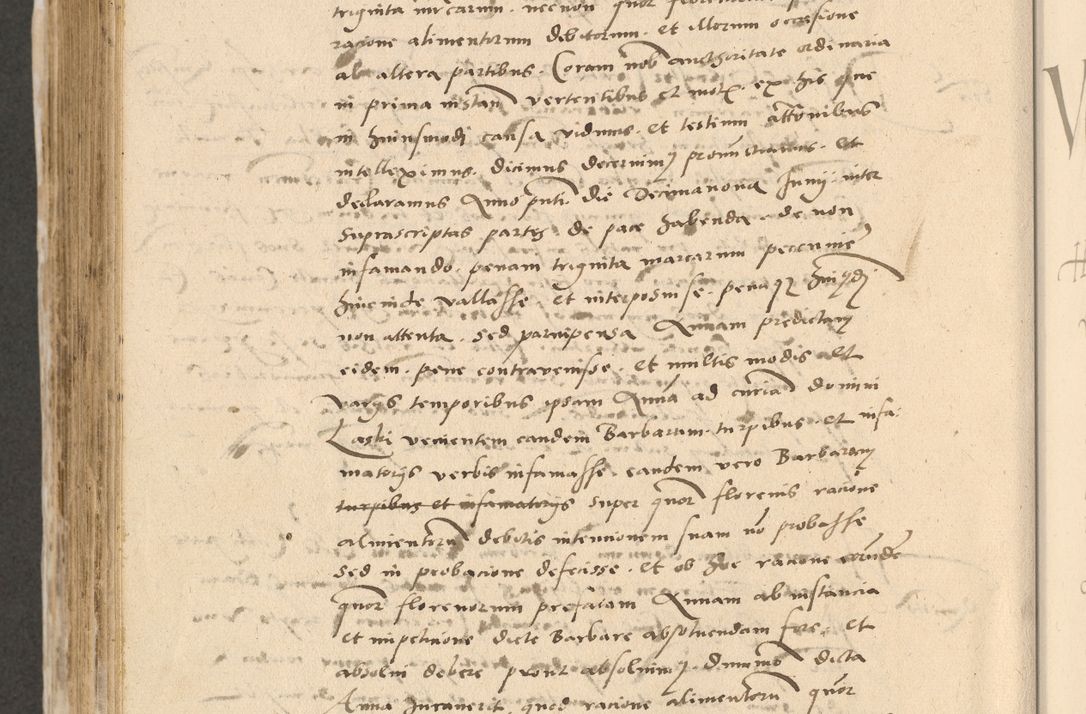 triginta marcarum. necnon quor floren
racione alimentorum debitorum. et illorum occasione
ab altera partibus. Coram nob authoritate ordinaria
in prima instan vertentibus et mot. ex his que
in huiusmodi causa vidimus. et testium attonibus
intelleximus. dicimus decernim pronunctiamus. et
declaramus Anno pnti die Decimanona Junij inter
suprascriptas partes de pace habenda de non
infamando. penam triginta marcarum pecunie
hincinde vallasse. et interposuisse. penaqz huiqdi
non attenta. sed parvipensa Annam predictam
eidem. pene contravenisse. et multis modis et
varijs temporibus ipsam Anna ad curiam domini
Laski venientem eandem Barbaram. turpibus. et infa:
matorijs verbis infamasse. eandem vero Barbaram
turpibus et infamatorijs super quor florenis racione
alimentorum debitis intencionem suam no probasse
sed in probacione defecisse. et ob hoc racione eorunde
quor florenorum prefatam Annam ab instancia
et impeticione dicte Barbare absolvendam fore. et
absolvi debere prout absolvim. dummo dicta
Anna iuraverit quod racione alimentoru quor